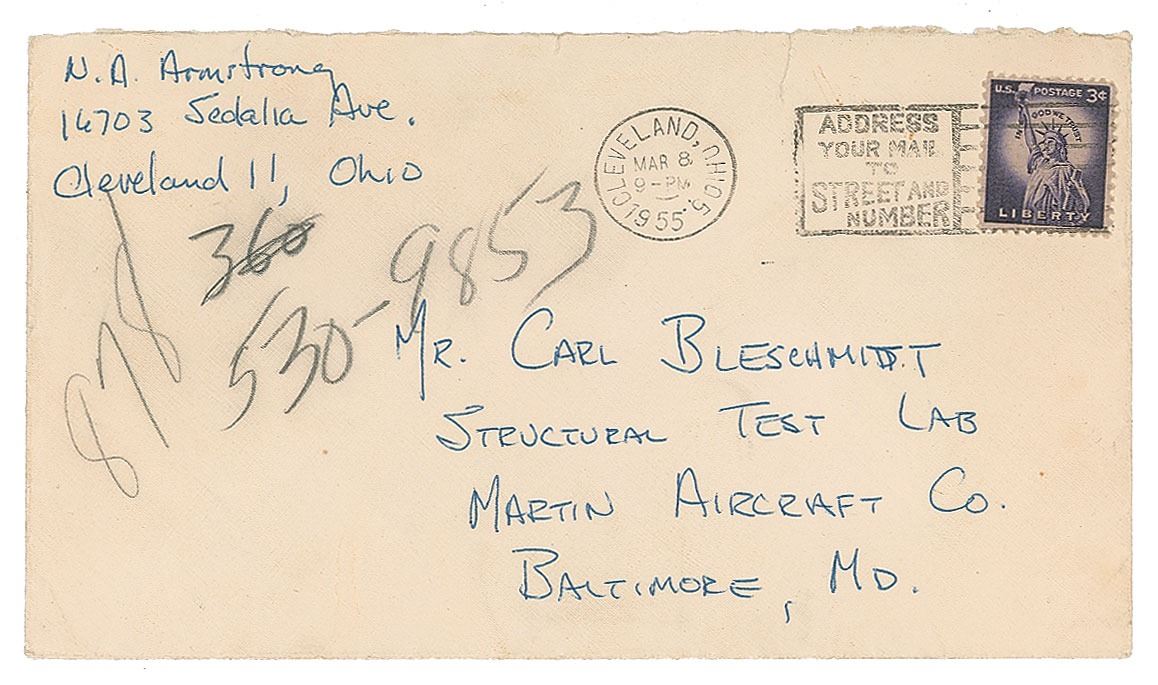 N. A. Armstrong
16703 Sedalia Ave.
Cleveland 11, Ohio
CLEVELAND, OHIO 5
MAR 8
9-PM
1955
ADDRESS
YOUR MAIL
TO
STREET AND
NUMBER
U.S. POSTAGE 3¢
IN GOD WE TRUST
LIBERTY
360
530-9853
878
MR. CARL BLESCHMIDT
STRUCTURAL TEST LAB
MARTIN AIRCRAFT CO.
BALTIMORE, MD.